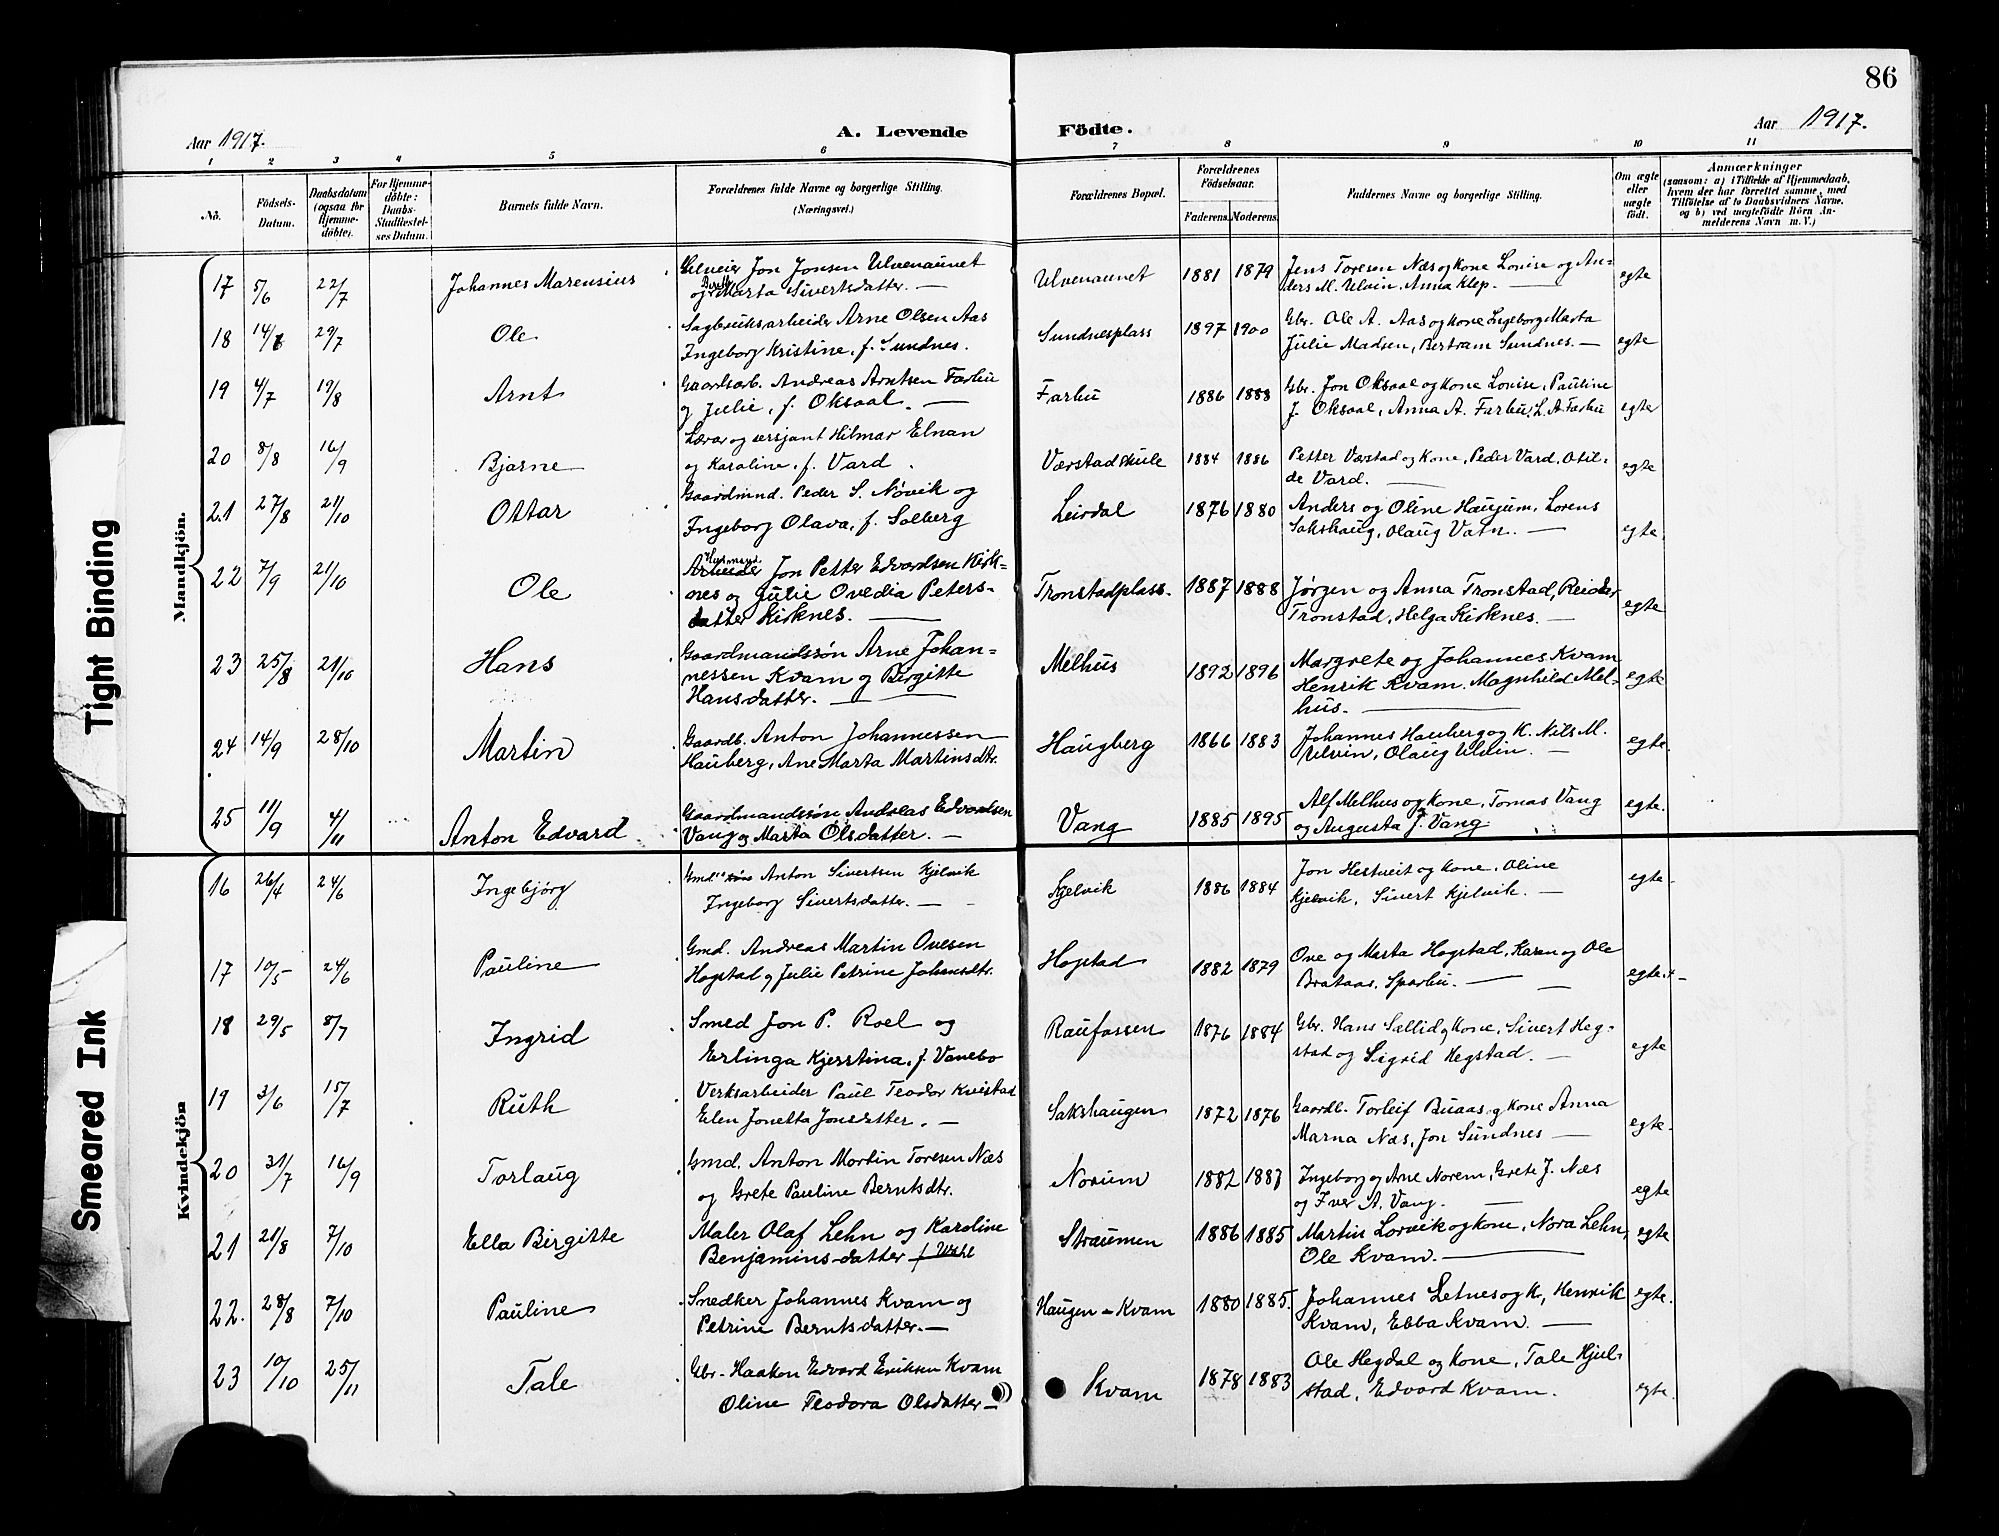 86
Aar 1917.
A. Levende Födte.
Aar 1917.
1 2 3 4 5 6 7 8 9 10 11
No.
Födsels-Datum.
Daabsdatum (ogsaa for Hjemme-döbte).
For Hjemme-döbte: Daabs-Stadfæstel-ses Datum.
Barnets fulde Navn.
Forældrenes fulde Navne og borgerlige Stilling.
(Næringsvei.)
Forældrenes Bopæl.
Forældrenes Födselsaar.
Faderens. Moderens.
Faddernes Navne og borgerlige Stilling.
Om ægte eller uægte födt.
Anmærkninger
(saasom: a) i Tilfælde af Hjemmedaab,
hvem der har forrettet samme, med
Tilföielse af to Daabsvidners Navne,
og b) ved uægtefödte Börn An-
melderens Navn m. V.)
Tight Binding
Smeared Ink
Mandkjön.
17 5/6 22/7 Johannes Marensius Jon Jonsen Ulvenaunet Ulvenaunet 1881 1879 Jens Toresen Næs og Kone Lonise og An-
og Berit Marta Sivertsdatter. — ders M. Ulvin. Anna Klep. — egte
18 14/6 29/7 Ole Sagbruksarbeider Arne Olsen Aas Sundnesplass 1897 1900 Gbr. Ole A. Aas og Kone Ingeborg Marta
Ingeborg Kristine, f. Sundnes. Julie Madsen, Bertram Sundnes. — egte
19 4/7 19/8 Arnt Gaardsarb. Andreas Arntsen Farbu Farbu 1886 1888 Gbr. Jon Oksaal og Kone Lovise, Pauline
og Julie, f. Oksaal. — J. Oksaal, Anna A. Farbu, L. A. Farbu egte
20 8/8 16/9 Bjarne Lærer og sersjant Hilmar Elnan Værstad skule 1884 1886 Petter Værstad og Kone, Peder Vard, Otil-
og Karoline, f. Vard. de Vard. — egte
21 27/8 21/10 Ottar Gaardmnd. Peder S. Nøvik og Leirdal 1876 1880 Anders og Oline Haugum, Lorens
Ingeborg Olava, f. Solberg Sakshaug, Olaug Vatn. — egte
22 7/9 21/10 Ole Arbeider Husmand. Jon Petter Edvardsen Kirk- Tronstadplass. 1887 1888 Jørgen og Anna Tronstad, Reidar
nes og Julie Ovedia Peters- Tronstad, Helga Kirknes. — egte
datter Kirknes. —
23 25/8 21/10 Hans Gaardmandssøn Arne Johan- Melhus 1892 1896 Margrete og Johannes Kvam
nessen Kvam og Birgitte Henrik Kvam. Magnhild Mel- egte
Hansdatter. — hus. —
24 14/9 28/10 Martin Gaardb. Anton Johannessen Haugberg 1866 1883 Johannes Hauberg og K. Nils M.
Hauberg, Ane Marta Martinsdtr. Ulvin, Olaug Ulvin. — egte.
25 11/9 4/11 Anton Edvard Gaardmandssøn Andreas Edvardsen Vang 1885 1895 Alf Melhus og Kone, Tomas Vang egte.
Vang og Marta Olsdatter. — og Augusta J. Vang.
Kvindekjön
16 26/4 24/6 Ingebjörg Gmd. Anton Sivertsen Kjelvik Kjelvik 1886 1884 Jon Hestveit og Kone. Oline
Ingeborg Sivertsdatter. — Kjelvik, Sivert Kjelvik. — egte.
17 10/5 24/6 Pauline Gmd. Andreas Martin Ovesen Hogstad 1882 1879 Ove og Marta Hogstad, Karen og Ole
Hogstad og Julie Petrine Johansdtr. Brataas. Sparbu. — egte.
18 29/5 8/7 Ingrid Smed Jon P. Roel og Raufossen 1876 1884 Gbr. Hans Sallid og Kone, Sivert Heg-
Erlinga Kjerstina, f. Vanebo stad og Sigrid Hegstad. — egte
19 3/6 15/7 Ruth Verksarbeider Paul Teodor Kvistad Sakshaugen 1872 1876 Gaardb. Torleif Buaas og Kone Anna
Elen Jonetta Jonsdatter. — Marna Næs, Jon Sundnes — egte.
20 31/7 16/9 Torlaug Gmd. Anton Martin Toresen Næs Norum 1882 1887 Ingeborg og Arne Norem, Grete J. Næs
og Grete Pauline Berntsdtr. og Iver A. Vang. — egte
21 21/8 7/10 Ella Birgitte Maler Olaf Lehn og Karoline Straumen 1886 1885 Martin Lorvik og Kone, Nora Lehn, egte
Benjaminsdatter Ole Kvam. —
22. 28/8 7/10 Pauline Snedker Johannes Kvam og Haugen - Kvam 1880 1885. Johannes Letnes og K, Henrik egte.
Petrine Berntsdatter. — Kvam, Ebba Kvam. —
23 10/10 25/11 Tale Gbr. Haakon Edvard Eriksen Kvam Kvam 1878 1883 Ole Hegdal og Kone, Tale Hjul-
Oline Teodora Olsdatter — stad, Edvard Kvam. egte.